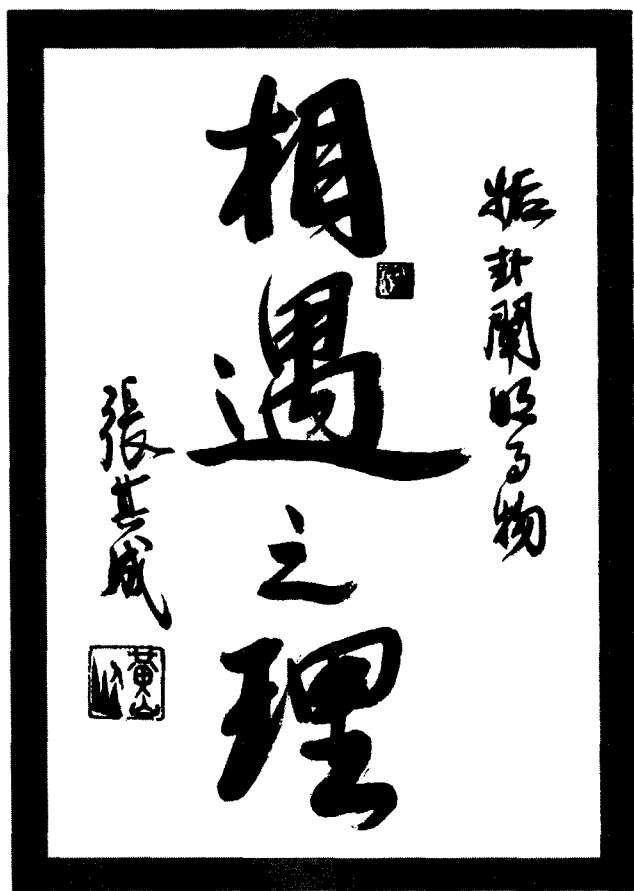 姤卦闡明事物
相遇之理
張其成
黃山